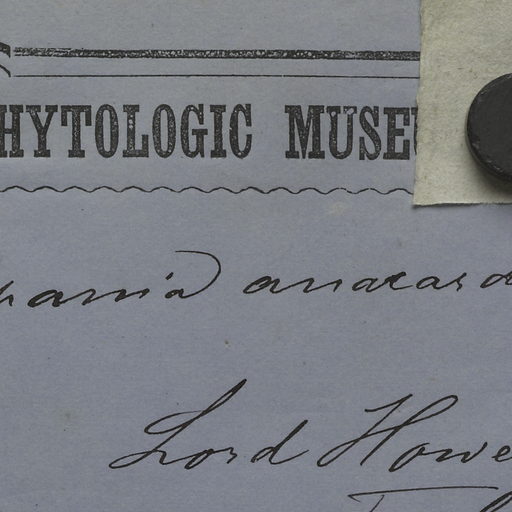 HYTOLOGIC MUSEU
pania anacard
Lord Howe